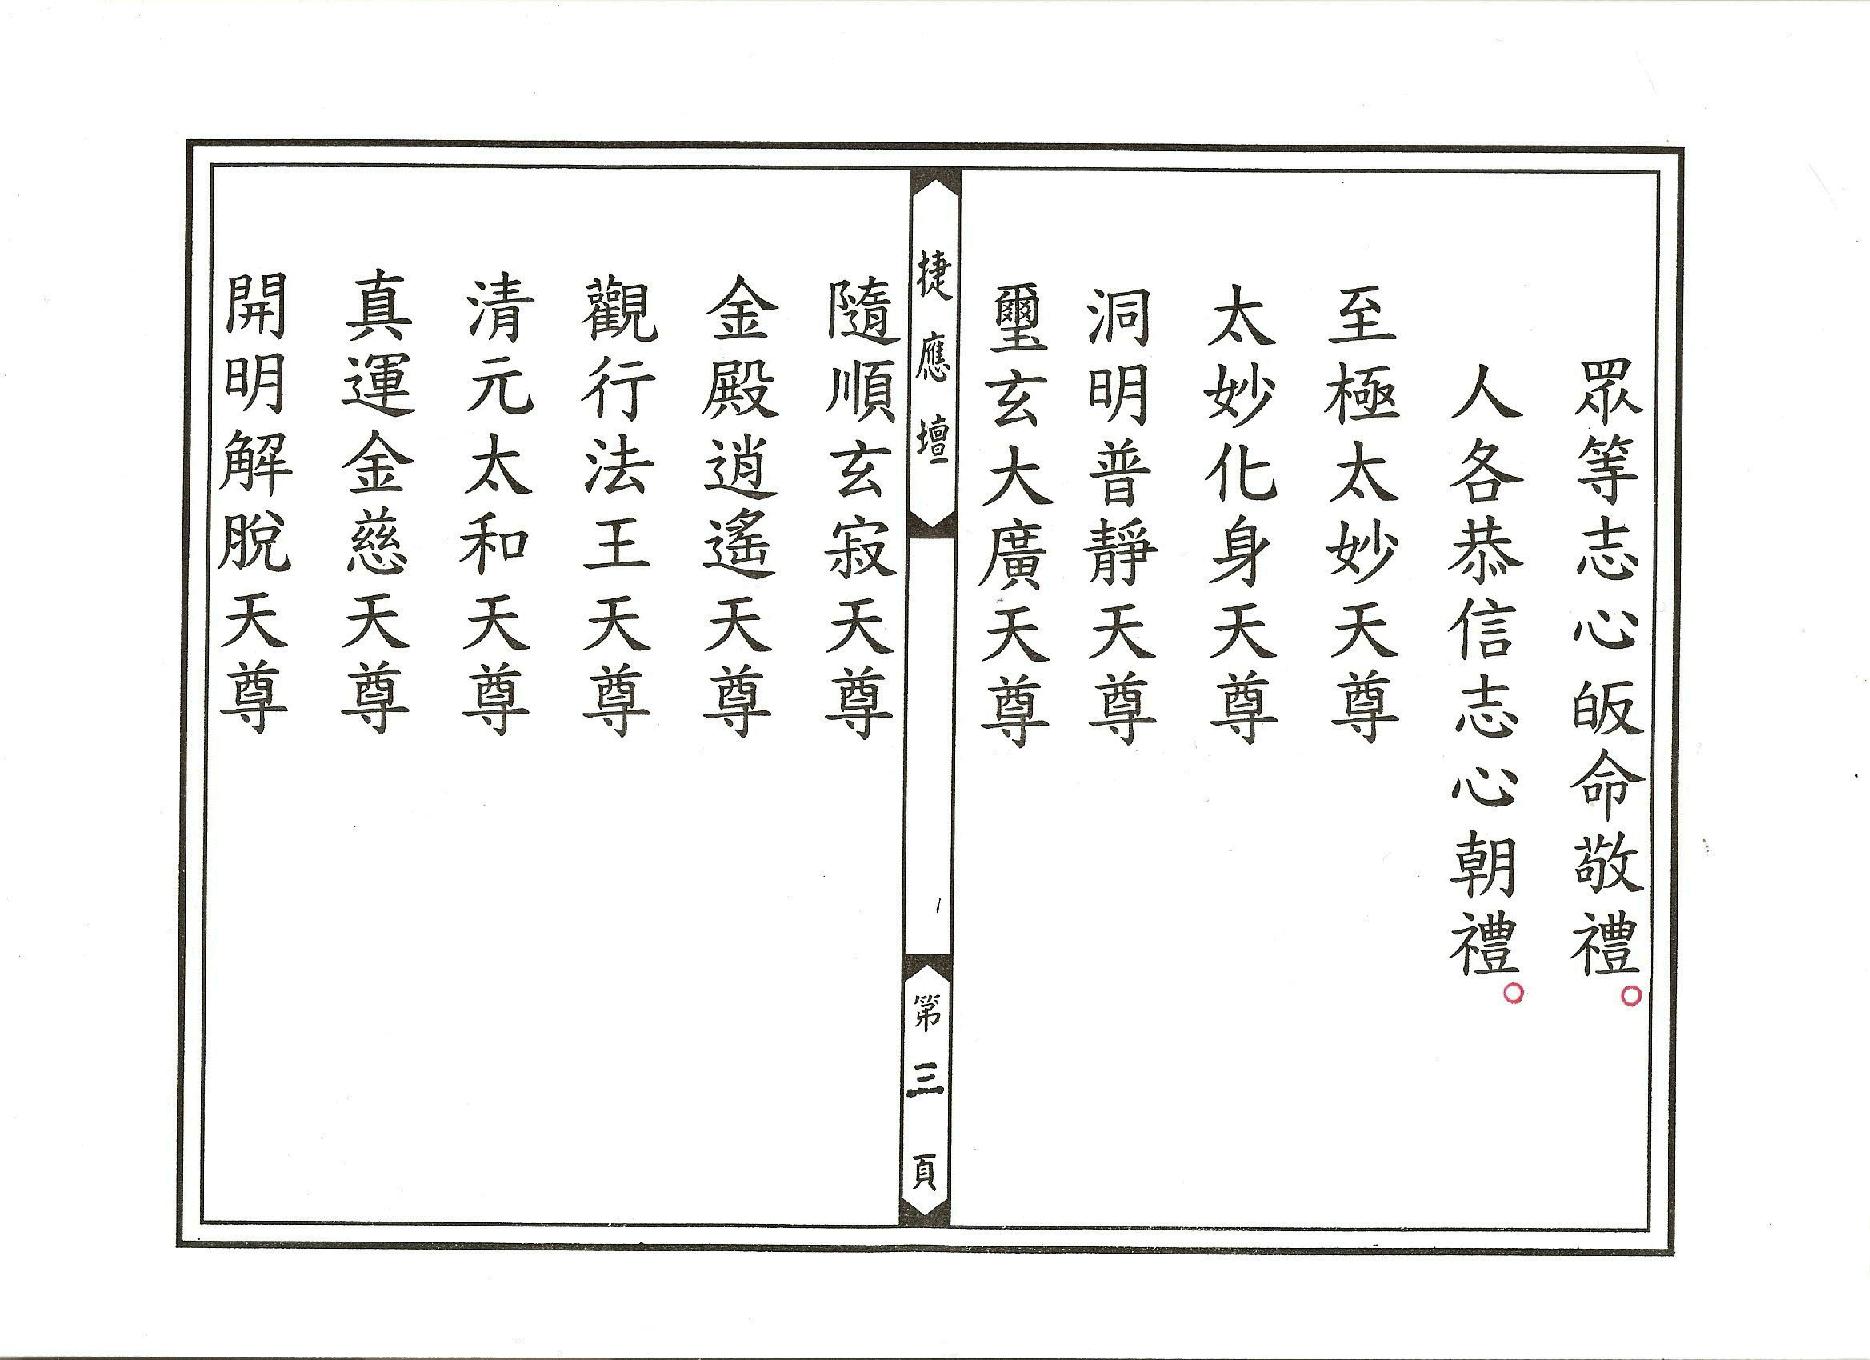 眾等志心皈命敬禮。
人各恭信志心朝禮。
至極太妙天尊
太妙化身天尊
洞明普靜天尊
璽玄大廣天尊
捷應壇
第三頁
隨順玄寂天尊
金殿逍遙天尊
觀行法王天尊
清元太和天尊
真運金慈天尊
開明解脫天尊